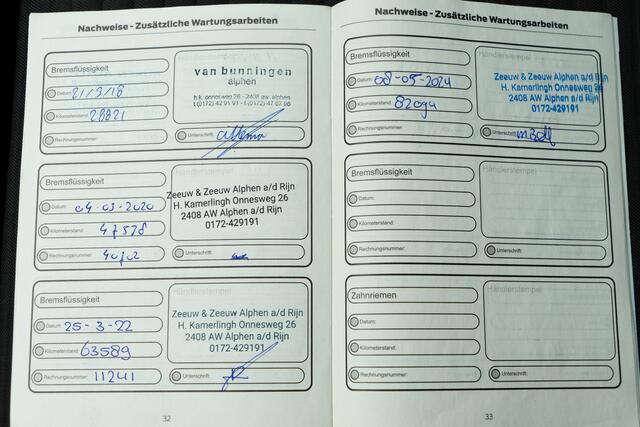 Nachweise - Zusätzliche Wartungsarbeiten
Bremsflüssigkeit
Datum: 21/3/18
Kilometerstand: 28821
Rechnungsnummer:
van bunningen
alphen
h.k. onnesweg 26 - 2408 aw. alphen
t.(0172) 42 91 91 - f.(0172)
Unterschrift:
Bremsflüssigkeit
Datum: 04-03-2020
Kilometerstand: 47578
Rechnungsnummer:
Zeeuw & Zeeuw Alphen a/d Rijn
H. Kamerlingh Onnesweg 26
2408 AW Alphen a/d Rijn
0172-429191
Unterschrift:
Bremsflüssigkeit
Datum: 25-3-22
Kilometerstand: 63589
Rechnungsnummer: 11241
Händlerstempel
Zeeuw & Zeeuw Alphen a/d Rijn
H. Kamerlingh Onnesweg 26
2408 AW Alphen a/d Rijn
0172-429191
Unterschrift:
32
Nachweise - Zusätzliche Wartungsarbeiten
Bremsflüssigkeit
Datum: 08-05-2024
Kilometerstand: 82094
Rechnungsnummer:
Händlerstempel
Zeeuw & Zeeuw Alphen a/d Rijn
H. Kamerlingh Onnesweg 26
2408 AW Alphen a/d Rijn
0172-429191
Unterschrift:
Bremsflüssigkeit
Datum:
Kilometerstand:
Rechnungsnummer:
Händlerstempel
Unterschrift:
Zahnriemen
Datum:
Kilometerstand:
Rechnungsnummer:
Händlerstempel
Unterschrift:
33